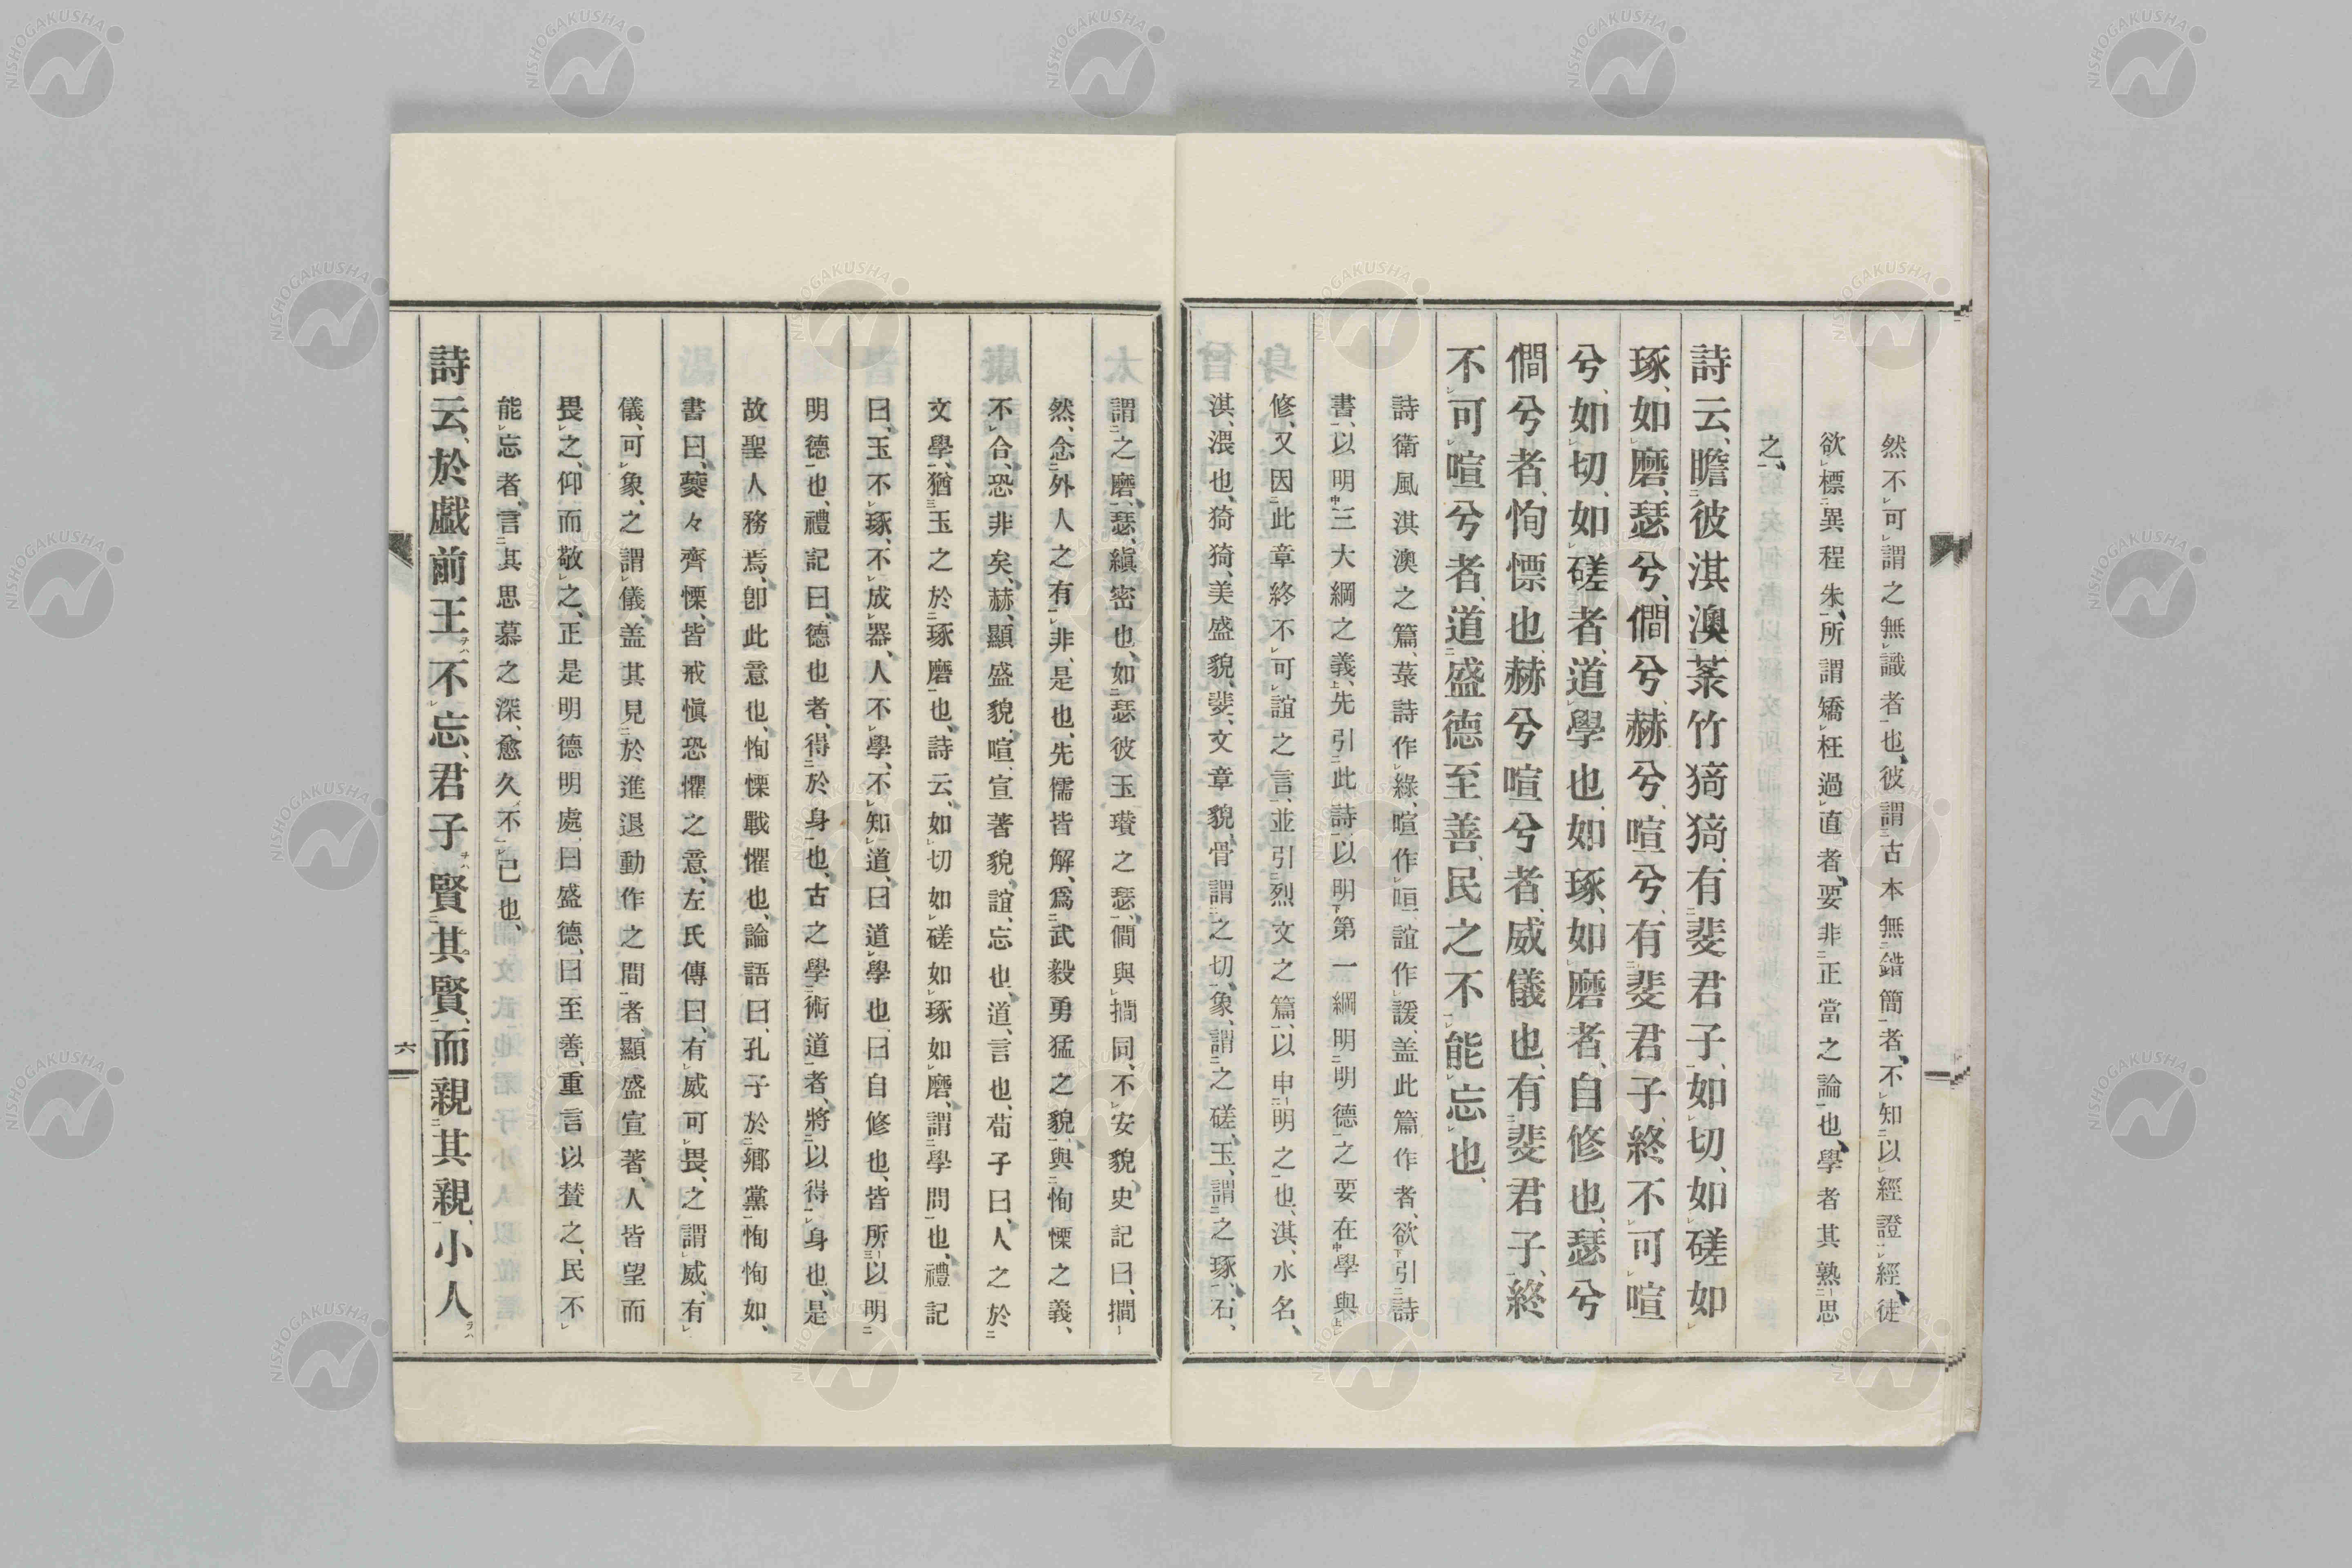 然不可謂之無識者也、彼謂古本無錯簡者、不知以經證經、徒
欲標異程朱、所謂矯枉過直者、要非正當之論也、學者其熟思
之、
詩云、瞻彼淇澳、菉竹猗猗、有斐君子、如切如磋如
琢、如磨、瑟兮、僩兮、赫兮、喧兮、有斐君子、終不可喧
兮、如切、如磋者、道學也、如琢、如磨者、自修也、瑟兮
僩兮者、恂慄也、赫兮喧兮者、威儀也、有斐君子、終
不可喧兮者、道盛德至善、民之不能忘也、
詩衛風淇澳之篇、菉詩作綠、喧作咺、諠作諼、盖此篇作者、欲引詩
書、以明三大綱之義、先引此詩、以明第一綱明明德之要在學與
修、又因此章終不可諠之言、並引烈文之篇、以申明之也、淇、水名、
淇、澳也、猗猗、美盛貌、斐、文章貌、骨謂之切、象、謂之磋、玉、謂之琢、石、
謂之磨、瑟、縝密也、如瑟彼玉瓚之瑟、僩與撊同、不安貌、史記曰、撊
然、念外人之有非、是也、先儒皆解、爲武毅勇猛之貌、與恂慄之義、
不合、恐非矣、赫、顯盛貌、喧、宣著貌、諠、忘也、道、言也、荀子曰、人之於
文學、猶玉之於琢磨也、詩云、如切如磋如琢如磨、謂學問也、禮記
曰、玉不琢、不成器、人不學、不知道、曰道學也、曰自修也、皆所以明
明德也、禮記曰、德也者、得於身也、古之學術道者、將以得身也、是
故聖人務焉、卽此意也、恂慄戰懼也、論語曰、孔子於鄉黨恂恂如、
書曰、夔々齊慄、皆戒愼恐懼之意、左氏傳曰、有威可畏、之謂威、有
儀、可象、之謂儀、盖其見於進退動作之間者、顯盛宣著、人皆望而
畏之、仰而敬之、正是明德明處、曰盛德、曰至善、重言以贊之、民不
能忘者、言其思慕之深、愈久不已也、
詩云、於戲前王不忘、君子賢其賢、而親其親、小人
六
NISHOGAKUSHA